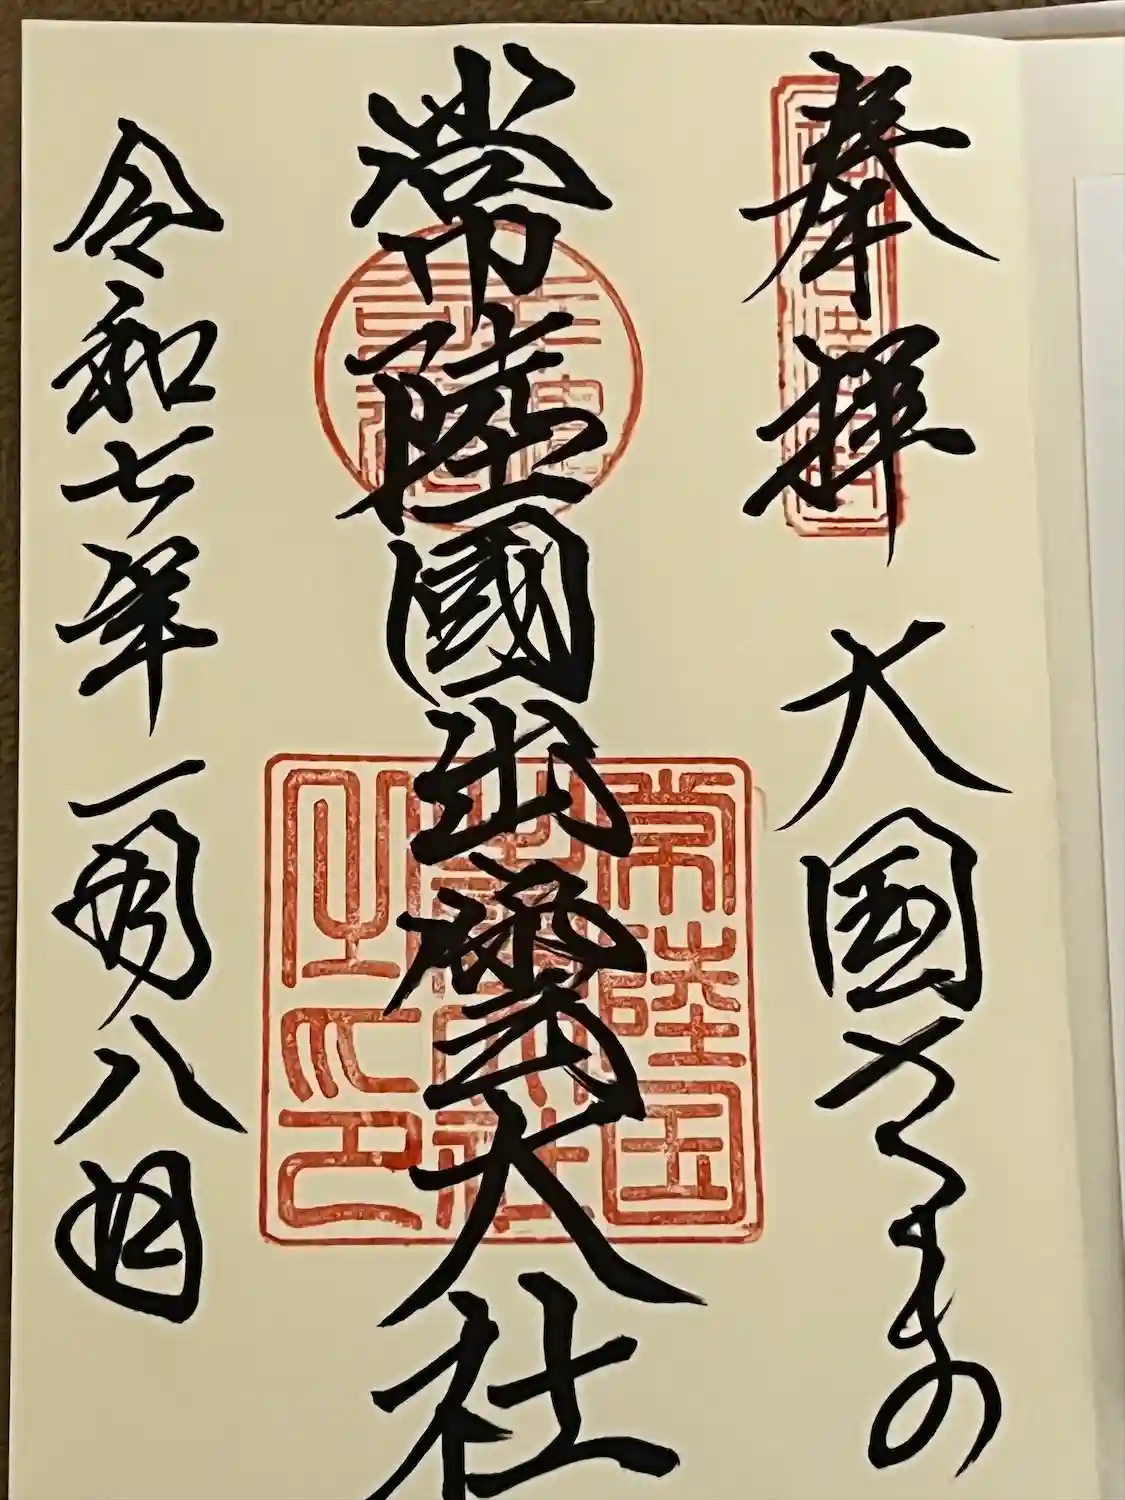 奉拝 大国さまの
常陸國出雲大社
令和七年一月八日
常陸国
出雲大社
之印